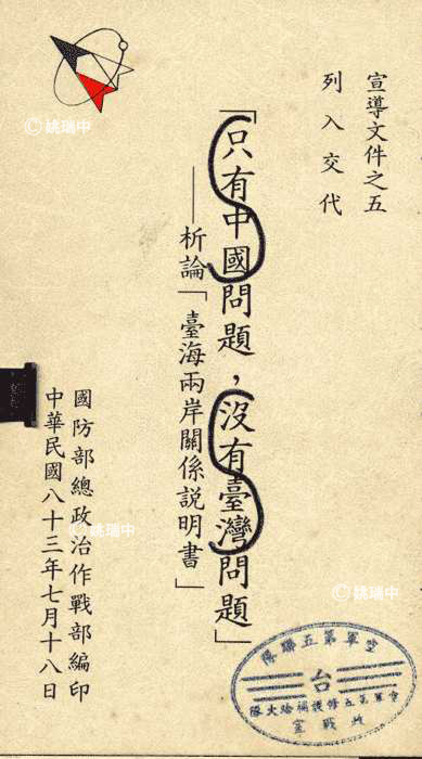 宣導文件之五
列入交代
「只有中國問題，沒有臺灣問題」
——析論「臺海兩岸關係說明書」
國防部總政治作戰部編印
中華民國八十三年七月十八日
空軍第五聯隊
台
空軍第五修護補給大隊
政戰室
©姚瑞中
©姚瑞中
©姚瑞中